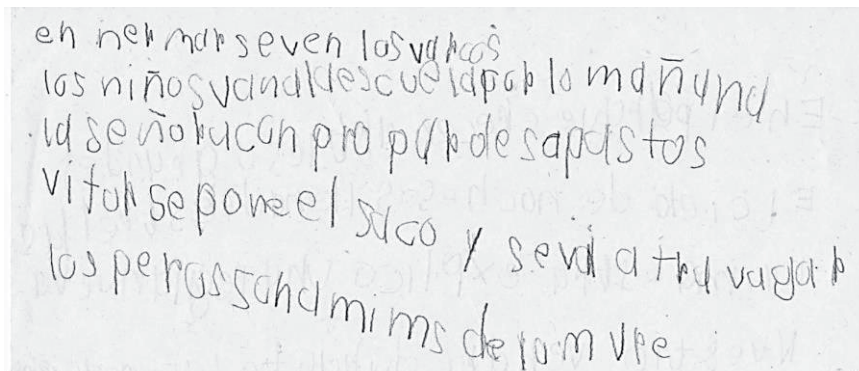 en ner mar se ven los varcos
los niños van aldescuela por lo mañana
la señora con pro par de sapastos
vitor se pone el saco y se va a tra vagar
los peros son a mi ms de